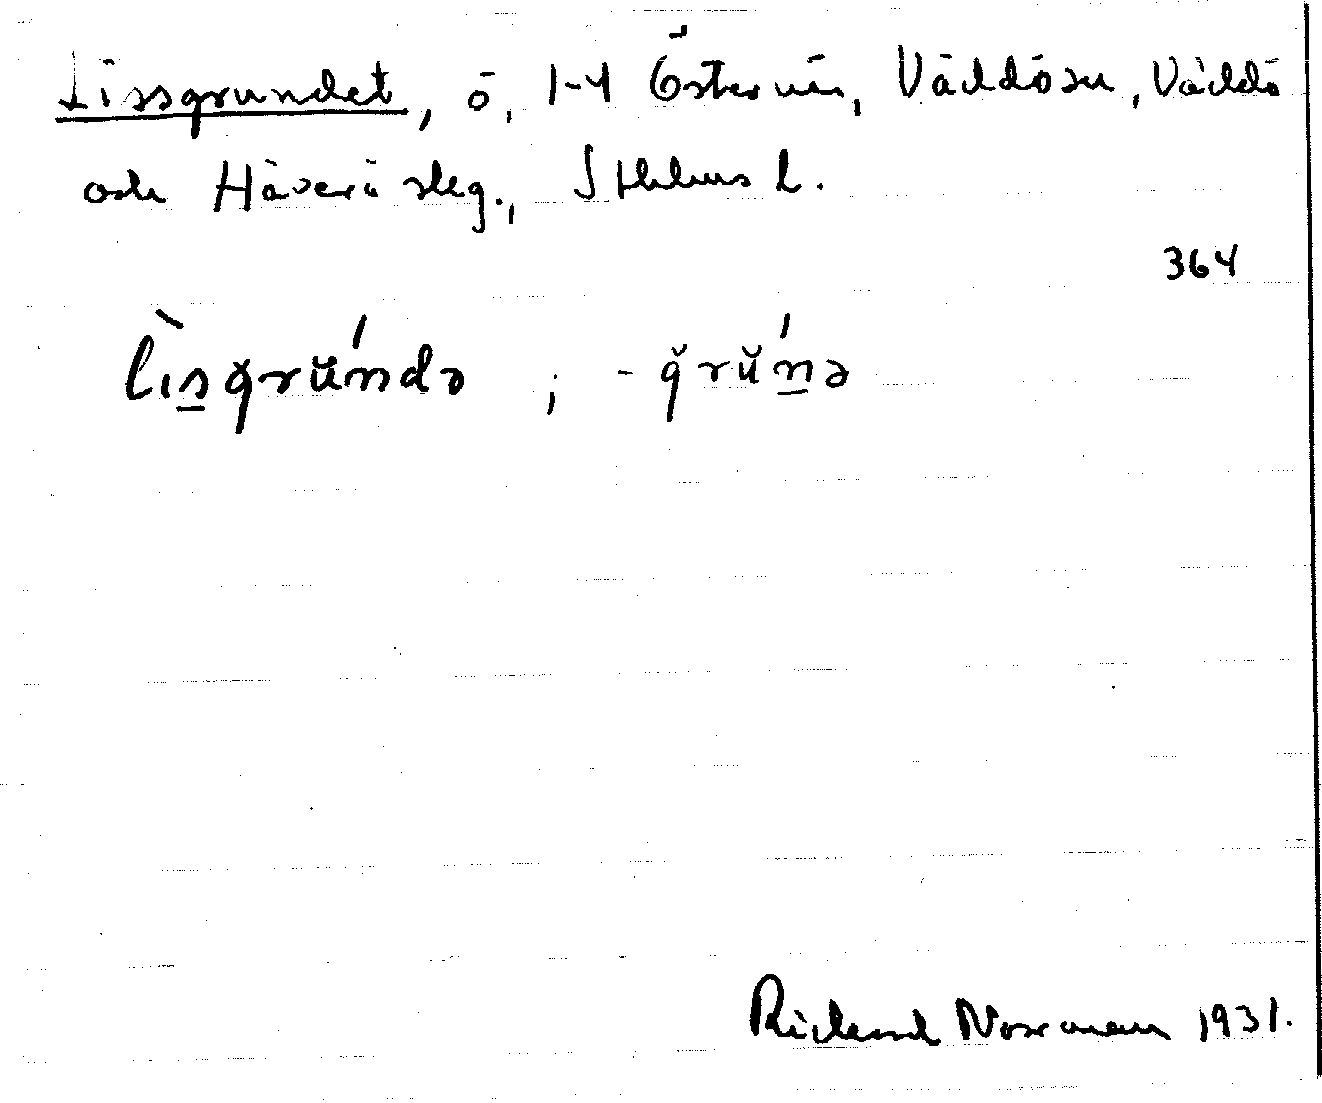 Lissgrundet, ö, 1-4 Östernäs, Väddösn, Väddö
och Häverö skg., Sthlms l.
364
lìsgrŭ́ndə ; -grŭ́nə
Richard Norrman 1931.